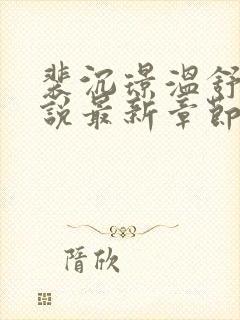 裴沉璟温舒
說最新章節
隋欣